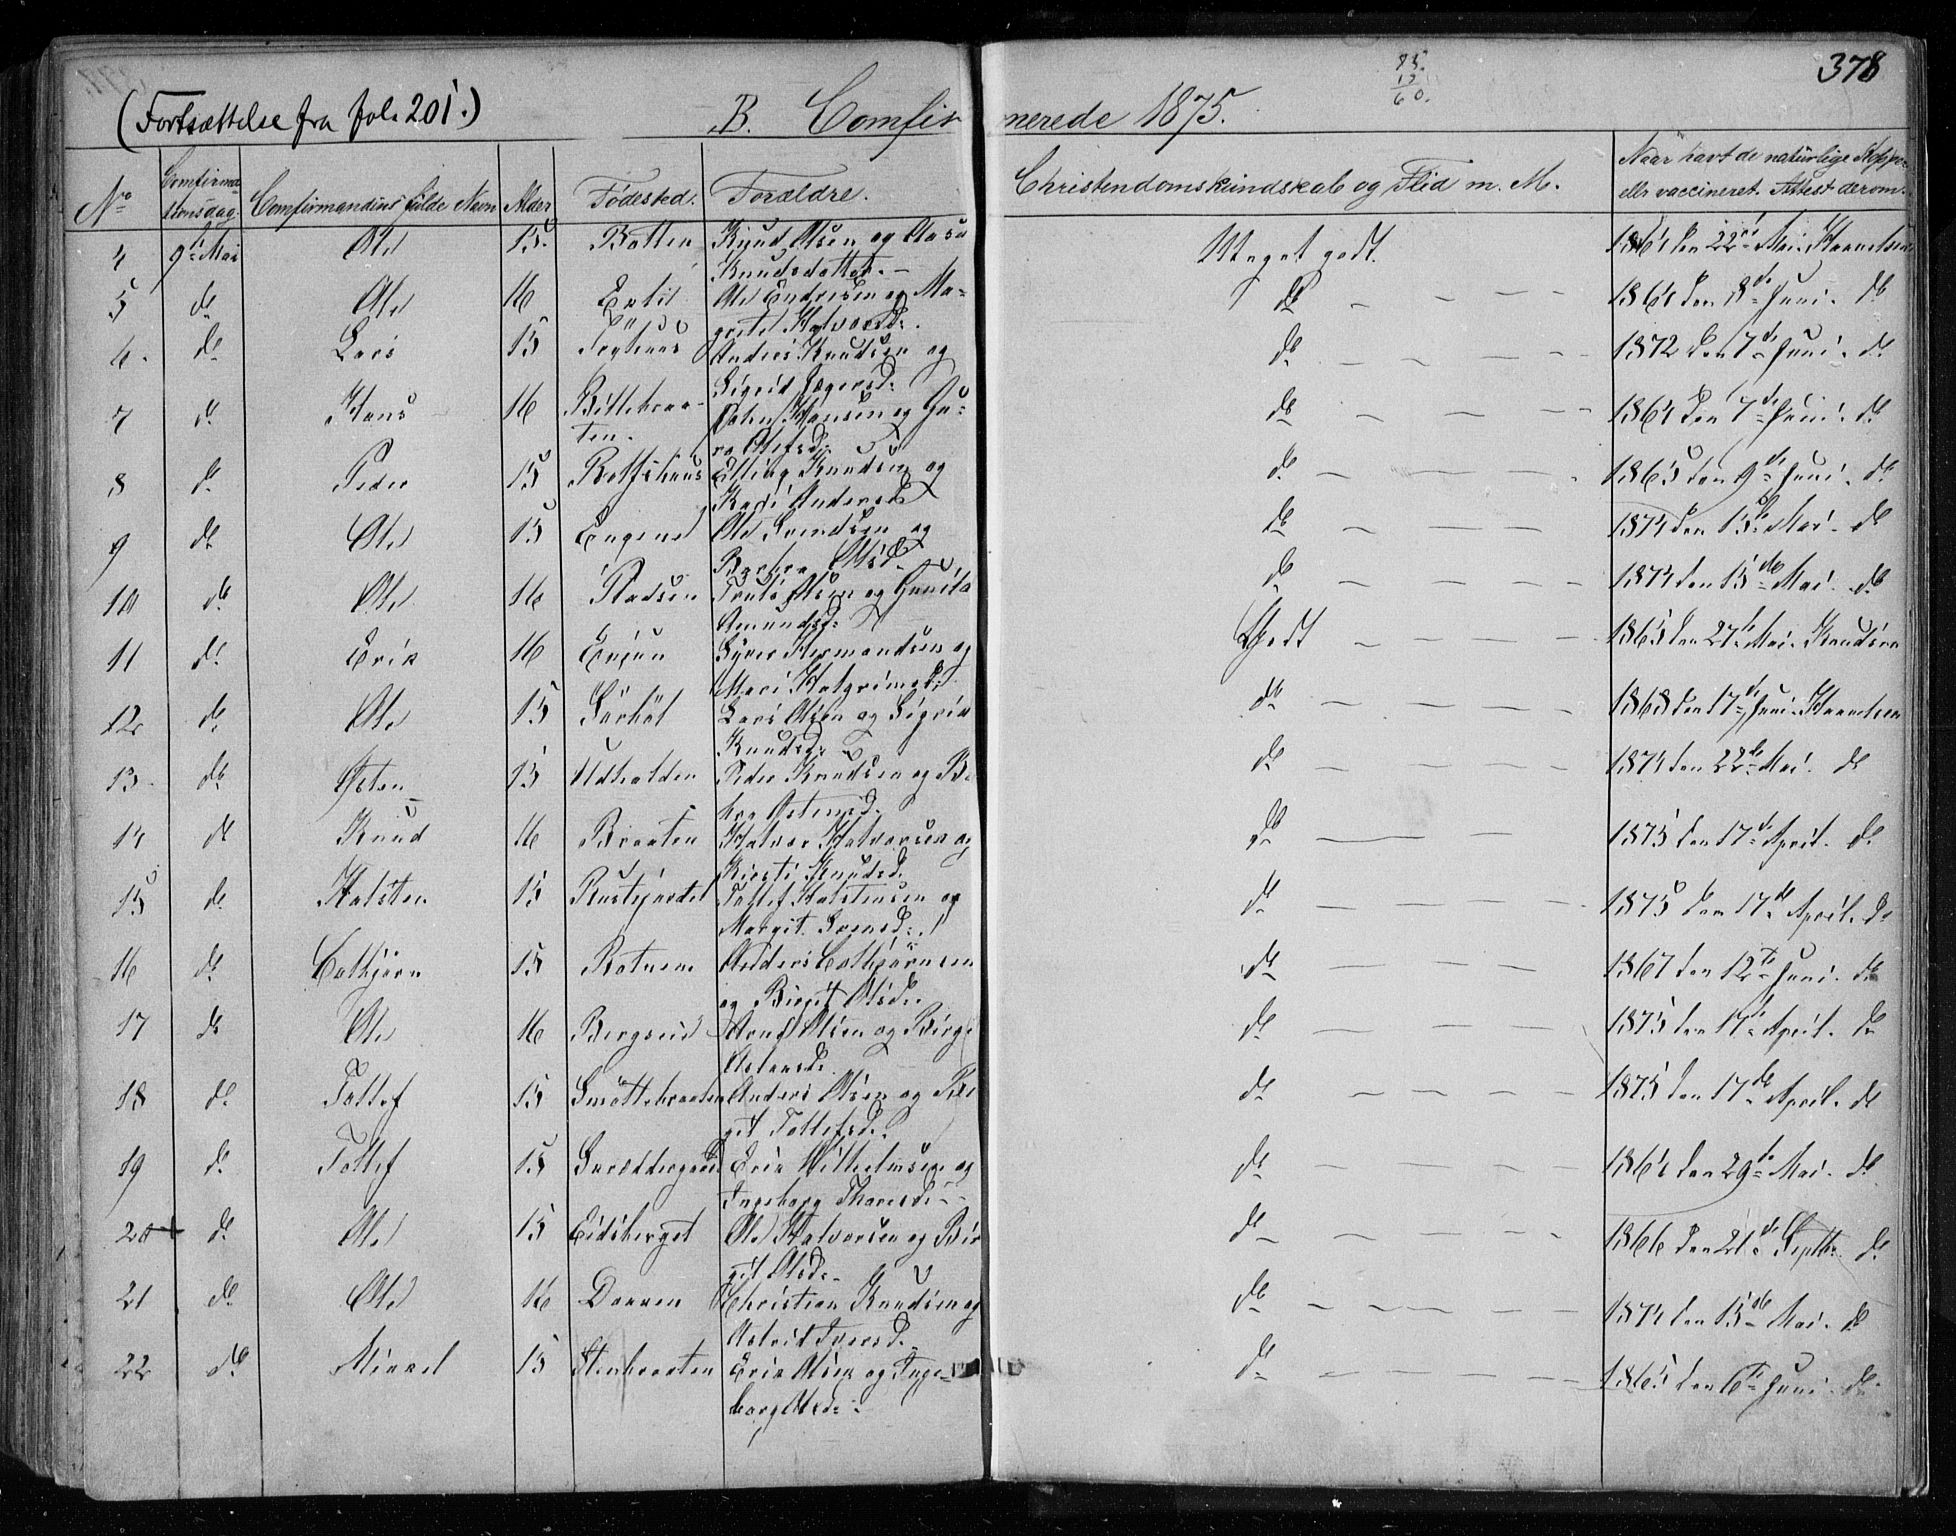 378
85.
(Fortsættelse fra fol. 201.) B. Comfirmerede 1875.
60.
No Comfirmationsdag. Comfirmandens fulde Navn Alder Fødested. Forældre. Christendomskundskab og Flid m. M. Naar havt de naturlige Kopper eller vaccineret. Attest derom.
4 9de Mai Ole 15. Batten Knud Olsen og Aase Meget godt. 1861 den 22de Mai
Knudsdatter. -
5 do Ole 16 Ole Endresen og Ma= do - - - - 1864 den 8de Juni. do
grete Halvorsd:
6. do Lars 15 Anders Knudsen og do - - - - 1872 den 7de Juni. do
Sigrid
7 do Hans 16 Bøttebraa- Hansen og Gu= do - - - - 1864 den 7de Juni. do
ten. ro Olefsd:
8 do Peder 15 Rolfshuus Elling Knudsen og do - - - - 1865 den 9de Juni. do
Kari Andersd.
9 do Ole 15 Engene Ole Svendsen og do - - - - 1874 den 15de Mai. do
Barbro Olsd.
10 do Ole 16 Pladsen Truls Olsen og Gunild do - - - - 1874 den 15de Mai. do
Amundsd:
11 do Erik 16 Syver Hermandsen og Godt - - - - 1865 den 27de Mai. Knudsen
Mari Halgrimsd:
12 do Ole 15 Lars Olsen og Sigrid do - - - - 1868 den 17de Juni.
Knudsd:
13. do Østen 15 Udhalden Peder Knudsen og B. do - - - - 1874 den 22de Mai. do
bro Østensd.
14 do Knud 16 Braaten Halvor Halvorsen og do - - - 1875 den 17de April. do
Kirsti Knudsd.
15 do Halsten 15 Rustgjordet Tollef Halstensen og do - - - - 1875 den 17de April. do
Margit Svensd:
16 do Botbjørn 15 Rotnem Anders Botbjørnsen do - - - - 1867 den 12te Juni. do
og Birgit Olsd:
17 do Ole 16 Bergseie Arne Olsen og Birge do - - - - 1875 den 17de April. do
18 do Tollef 15 Smøttebraaten Anders Olsen og Bir do - - - - 1875 den 17de April. do
git Tollefsd:
19 do Tollef 15 Skræddergaard Erik Vilhelmsen og do - - - - 1864 den 29de Mai. do
Ingeborg Thoresd:
20 do Ole 15 Eidsberget Ole Halvorsen og Bir do - - - - 1866 den 21de Septbr. do
git Olsd:
21 do Ole 16 Dokken Christian Knudsen og do - - - - 1874 den 15de Mai. do
Astrid Iversd.
22 do Mikkel 15 Stenbraaten Erik Olsen og Inge= do - - - - 1865 den 6te Juni. do
borg Olsd: